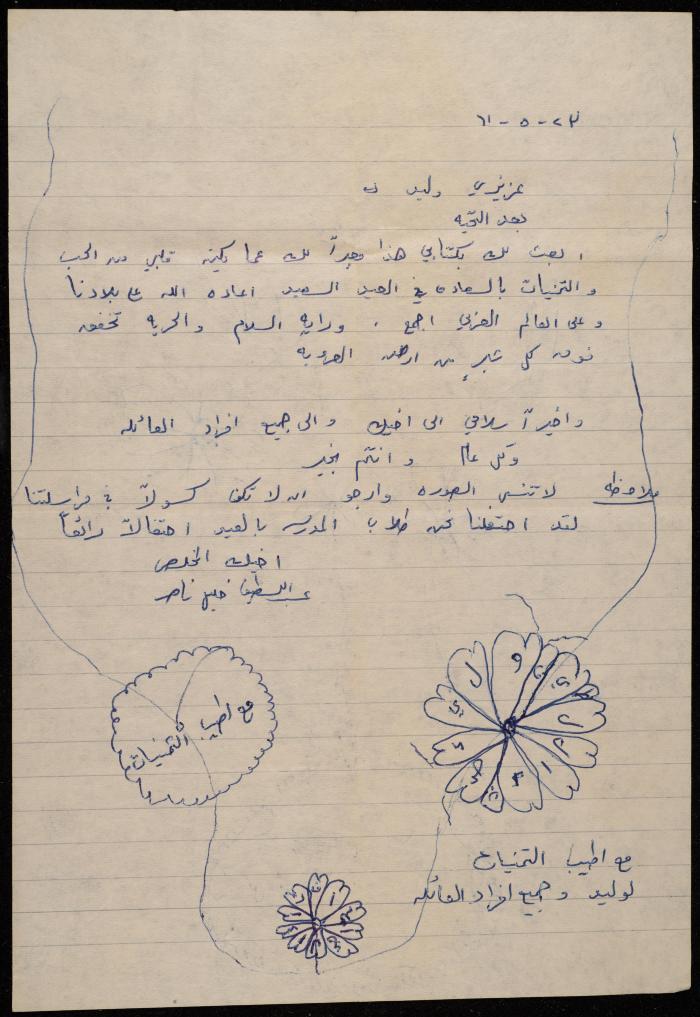 ٢٣ - ٥ - ٦١
عزيزي وليد
بعد التحيه
ابعث لك بكتابي هذا معبراً لك عما يكنه قلبي من الحب
والتمنيات بالسعاده في العيد السعيد اعاده الله على بلادنا
وعلى العالم العربي اجمع . ورايه السلام والحريه تخفق
فوق كل شبرٍ من ارض العروبه
واخيراً سلامي الى اخيك والى جميع افراد العائله
وكل عام وانتم بخير
ملاحظه لا تنسى الصوره وارجو ان لا تكن كسولاً في مراسلتنا
لقد احتفلنا نحن طلاب المدرسه بالعيد احتفالاً رائعاً
اخيك المخلص
عبد اللطيف خليل ناصر
مع اطيب التمنيات
مع اطيب التمنيات
لوليد وجميع افراد العائله